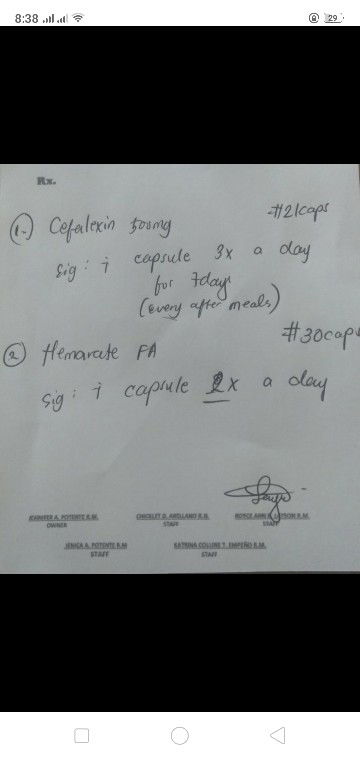 8:38
29
Rx.
1. Cefalexin 500mg #21caps
Sig: i capsule 3x a day
for 7days
(every after meals)
2 Hemarate FA #30caps
Sig: i capsule x a day
JENNIFER A. POTENTE R.M. CHICKLET D. ARELLANO R.N. ROYCE ANN
OWNER STAFF STAFF
JENICA A. POTENTE R.M KATRINA COLLINE T. EMPEÑO R.M.
STAFF STAFF